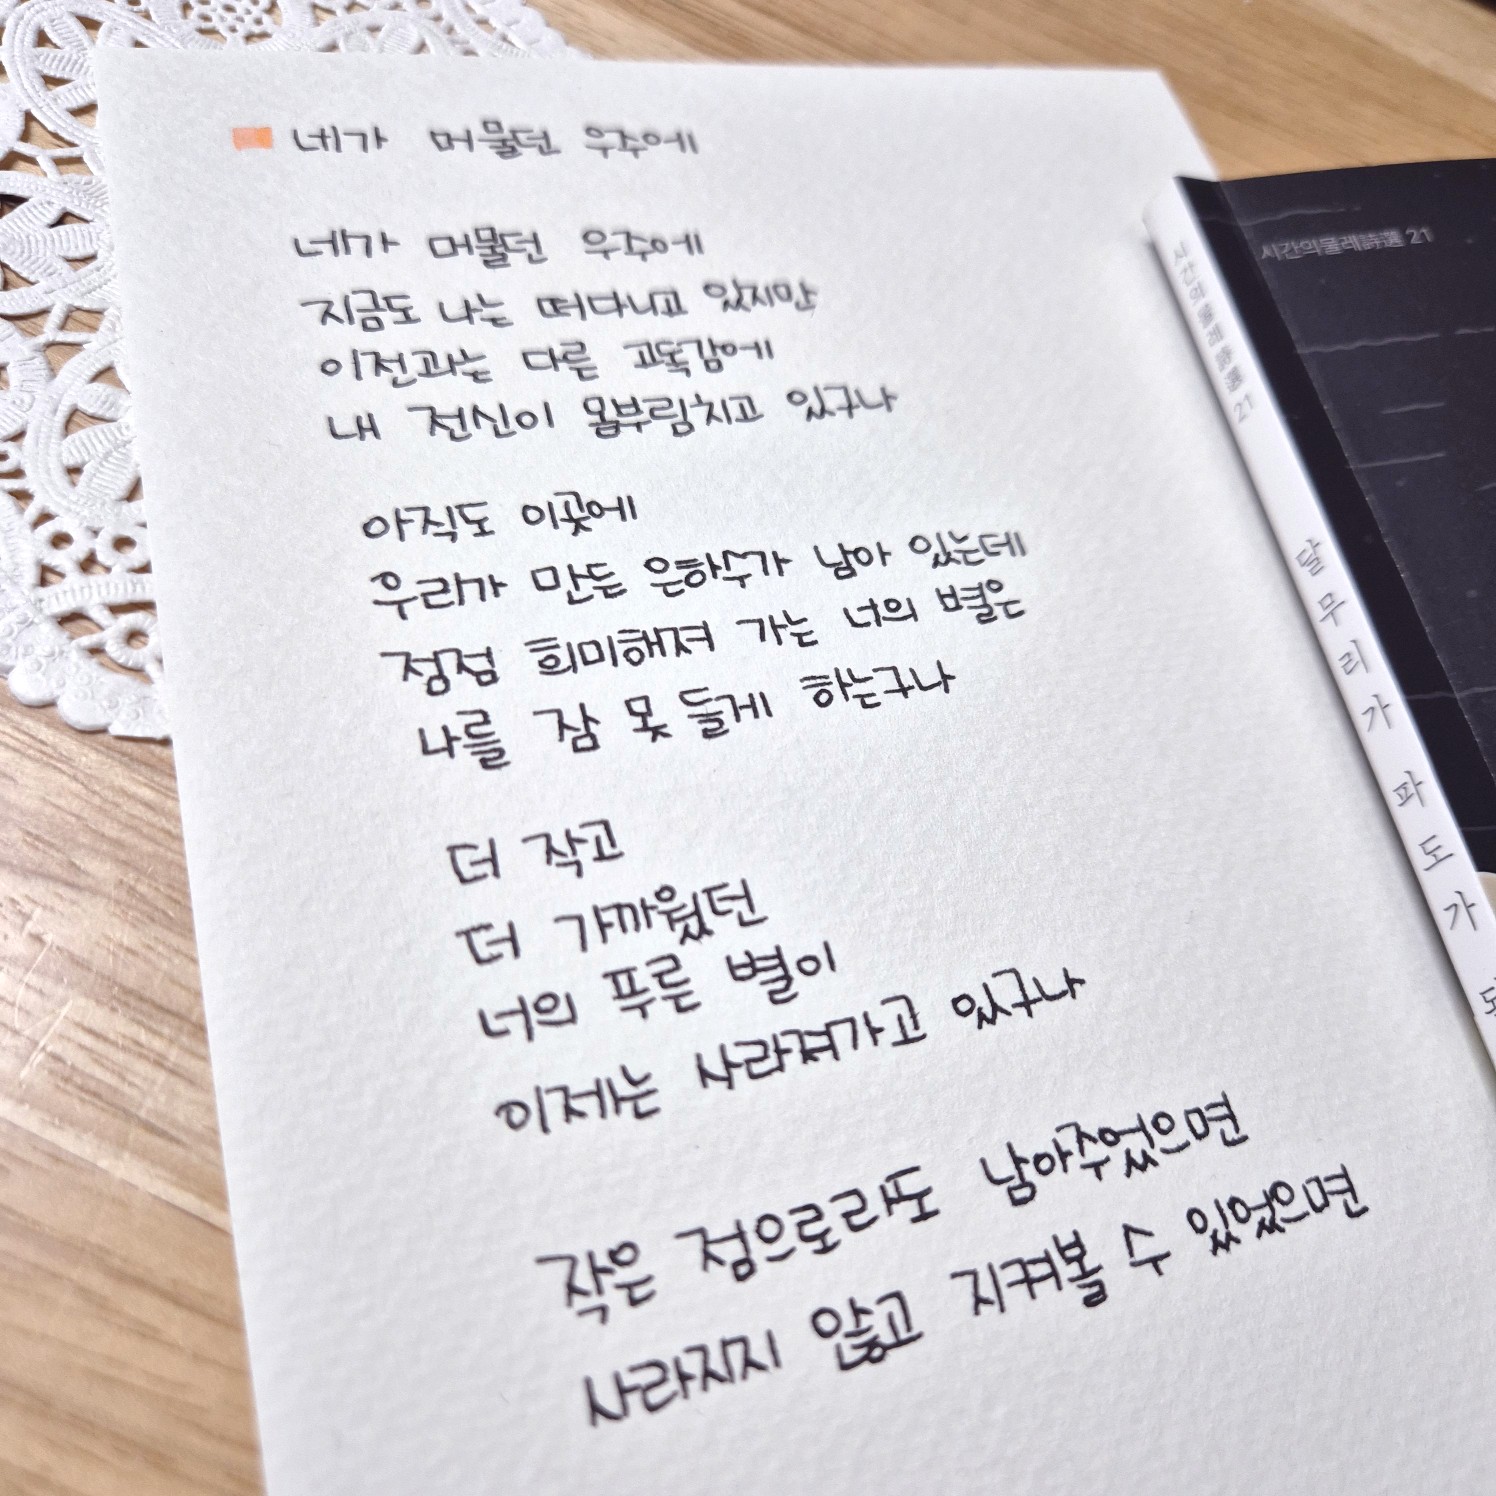 네가 머물던 우주에
네가 머물던 우주에
지금도 나는 떠다니고 있지만
이전과는 다른 고독감에
내 전신이 몸부림치고 있구나
아직도 이곳에
우리가 만든 은하수가 남아 있는데
점점 희미해져 가는 너의 별은
나를 잠 못 들게 하는구나
더 작고
더 가까웠던
너의 푸른 별이
이제는 사라져가고 있구나
작은 점으로라도 남아주었으면
사라지지 않고 지켜볼 수 있었으면
시간의물레詩選 21
시간의물레詩選 21
달무리가 파도가